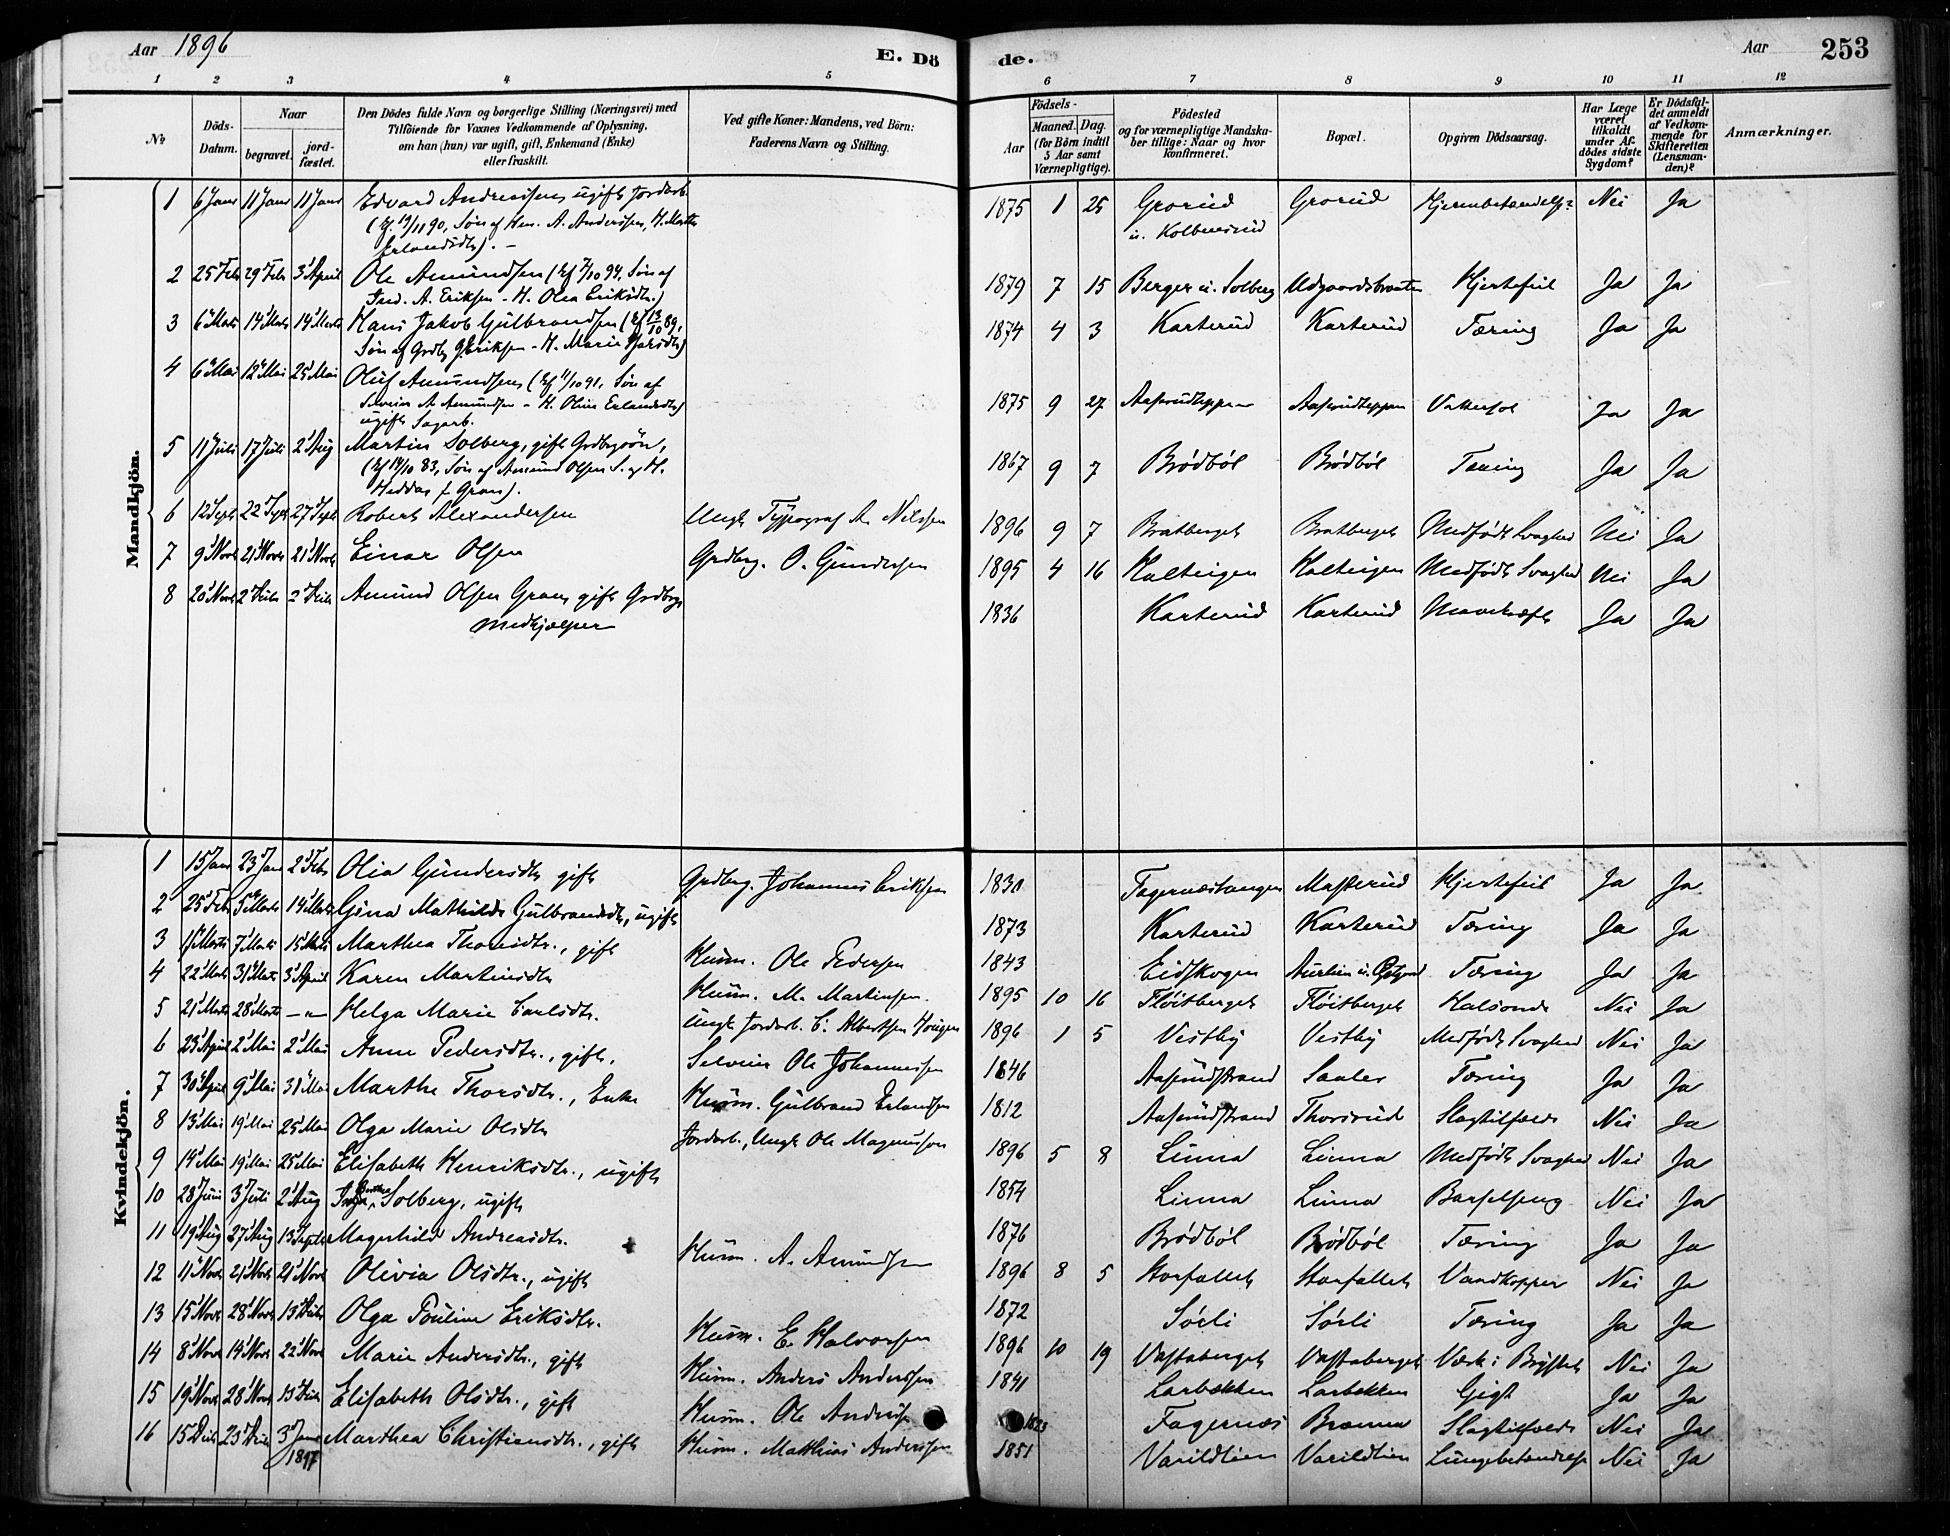 Aar 1896 E. Dö
de. Aar 253
1 2 3 4 5 6 7 8 9 10 11 12
№
Döds-Datum.
Naar
begravet. jordfæstet.
Den Dödes fulde Navn og borgerlige Stilling (Næringsvei) med
Tilföiende for Voxnes Vedkommende af Oplysning,
om han (hun) var ugift, gift, Enkemand (Enke)
eller fraskilt.
Ved gifte Koner: Mandens, ved Börn:
Faderens Navn og Stilling.
Födsels-
Aar Maaned. Dag.
(for Börn indtil
5 Aar samt
Værnepligtige).
Födested
og for værnepligtige Mandska-
ber tillige: Naar og hvor
konfirmeret.
Bopæl.
Opgiven Dödsaarsag.
Har Læge
været
tilkaldt
under Af-
dödes sidste
Sygdom?
Er Dödsfal-
det anmeldt
af Vedkom-
mende for
Skifteretten
(Lensman-
den)?
Anmærkninger.
Mandkjön.
1 6 Janr 11 Janr 11 Janr Edvard Andreassen ugift Jordarb. 1875 1 25 Grorud Grorud Hjernebetændelse Nei Ja
(kf. 12/11 90, Søn af Hm. A. Anderssen, H. Marthe u. Kolbensrud
Erlandsdtr). –
2 25 Febr 29 Febr 3 April Ole Amundsen (kf 7/10 94, Søn af 1879 7 15 Berger u. Solberg Udgaardsbraaten Hjertefeil Ja Ja
Ind. A. Eriksen – H. Olea Eriksdtr.)
3 6 Marts 14 Marts 14 Marts Hans Jakob Gulbrandsen (kf 13/10 89, 1874 4 3 Karterud Karterud Tæring Ja Ja
Søn af Grdbr G. Eriksen – H. Marie
4 6 Mai 12 Mai 25 Mai Oluf Amundsen (kf 11/10 91, Søn af 1875 9 27 Vattersot Ja Ja
Selveier A. Amundsen – H. Oline Erlandsdtr)
ugift Sagarb.
5 11 Juli 17 Juli 2 Aug Martin Solberg, gift Grdbrgsøn, 1867 9 7 Brödböl Brödböl Tæring Ja Ja
(kf 14/10 83, Søn af Amund Olsen S. og H.
Heddas f. Gran).
6 12 Septr 22 Septr 27 Septr Robert Alexandersen Ungk Typograf A. Nilssen 1896 9 7 Bratberget Bratberget Medfødt Svaghed Nei Ja
7 9 Novbr 21 Novbr 21 Novbr Einar Olsen Grdbrg. O. Gundersen 1895 4 16 Kalteigen Kalteigen Medfødt Svaghed Nei Ja
8 20 Novbr 2 Decbr 2 Decbr Amund Olsen Gran, gift Grdbrgr 1836 Karterud Karterud Mavekræft Ja Ja
Medhjælper
Kvindekjön.
1 15 Janr 23 Jan 2 Febr Olea Gundersdtr gift Grdbrg. Johannes Eriksen 1830 Fagernæstangen Masterud Hjertefeil Ja Ja
2 25 Febr 5 Marts 14 Marts Gina Mathilde Gulbrandsdtr, ugift 1873 Karterud Karterud Tæring Ja Ja
3 1 Marts 7 Marts 15 Marts Marthea Thorsdtr., gift Husm. Ole Pedersen 1843 Eidskogen Tæring Ja Ja
4 22 Marts 31 Marts 3 April Karen Martinsdtr Husm. M. Martinsen. 1895 10 16 Fløitberget Fløitberget Halsonde Nei Ja
5 21 Marts 28 Marts –"– Helga Marie Carlsdtr. Ungk Jordarb. C. Albertsen Haugen 1896 1 5 Vestby Vestby Medfødt Svaghed Nei Ja
6 23 April 2 Mai 2 Mai Anne Pedersdtr., gift. Selveier Ole Johannessen 1846 Aasrudstrand Saaler Tæring Ja Ja
7 30 April 9 Mai 31 Mai Marthe Thorsdtr., Enke Husm. Gulbrand Erlandsen 1812 Aasrudstrand Thorsrud Slagtilfælde Nei Ja
8 13 Mai 19 Mai 25 Mai Olga Marie Olsdtr Jordarb., Ungk Ole Magnusson 1896 5 8 Linna Linna Medfødt Svaghed Nei Ja
9 14 Mai 19 Mai 25 Mai Elisabeth Henriksdtr., ugift 1854 Linna Linna Barselseng Nei Ja
10 28 Juni 3 Juli 2 Aug Inga Berthea Solberg, ugift 1876 Brödböl Brödböl Tæring Ja Ja
11 19 Aug 27 Aug 13 Septr Magnhild Andreasdtr. Husm. A. Amundsen 1896 8 5 Storfallet Storfallet Vandkopper Nei Ja
12 11 Novr 21 Novr 21 Novr Olivia Olsdtr., ugift 1872 Sørli Sørli Tæring Ja Ja
13 15 Novr 28 Novr 13 Decbr Olga Pouline Eriksdtr. Husm. E. Halvorsen 1896 10 19 Vastaberget Vastaberget Værk i Brystet Nei Ja
14 8 Novr 14 Novr 22 Novr Marie Andersdtr., gift Husm. Anders Anderssen 1841 Larbækken Larbækken Gigt Ja Ja
15 19 Novr 28 Novr 13 Decbr Elisabeth Olsdtr., gift Husm. Ole Anders Fagernæs Branna Slagtilfælde Nei Ja
16 15 Decbr 23 Decbr 3 Janr 1897 Marthea Christiansdtr., gift Husm. Matthias Anderssen 1851 Varildtien Varildtien Lungebetændelse Nei Ja